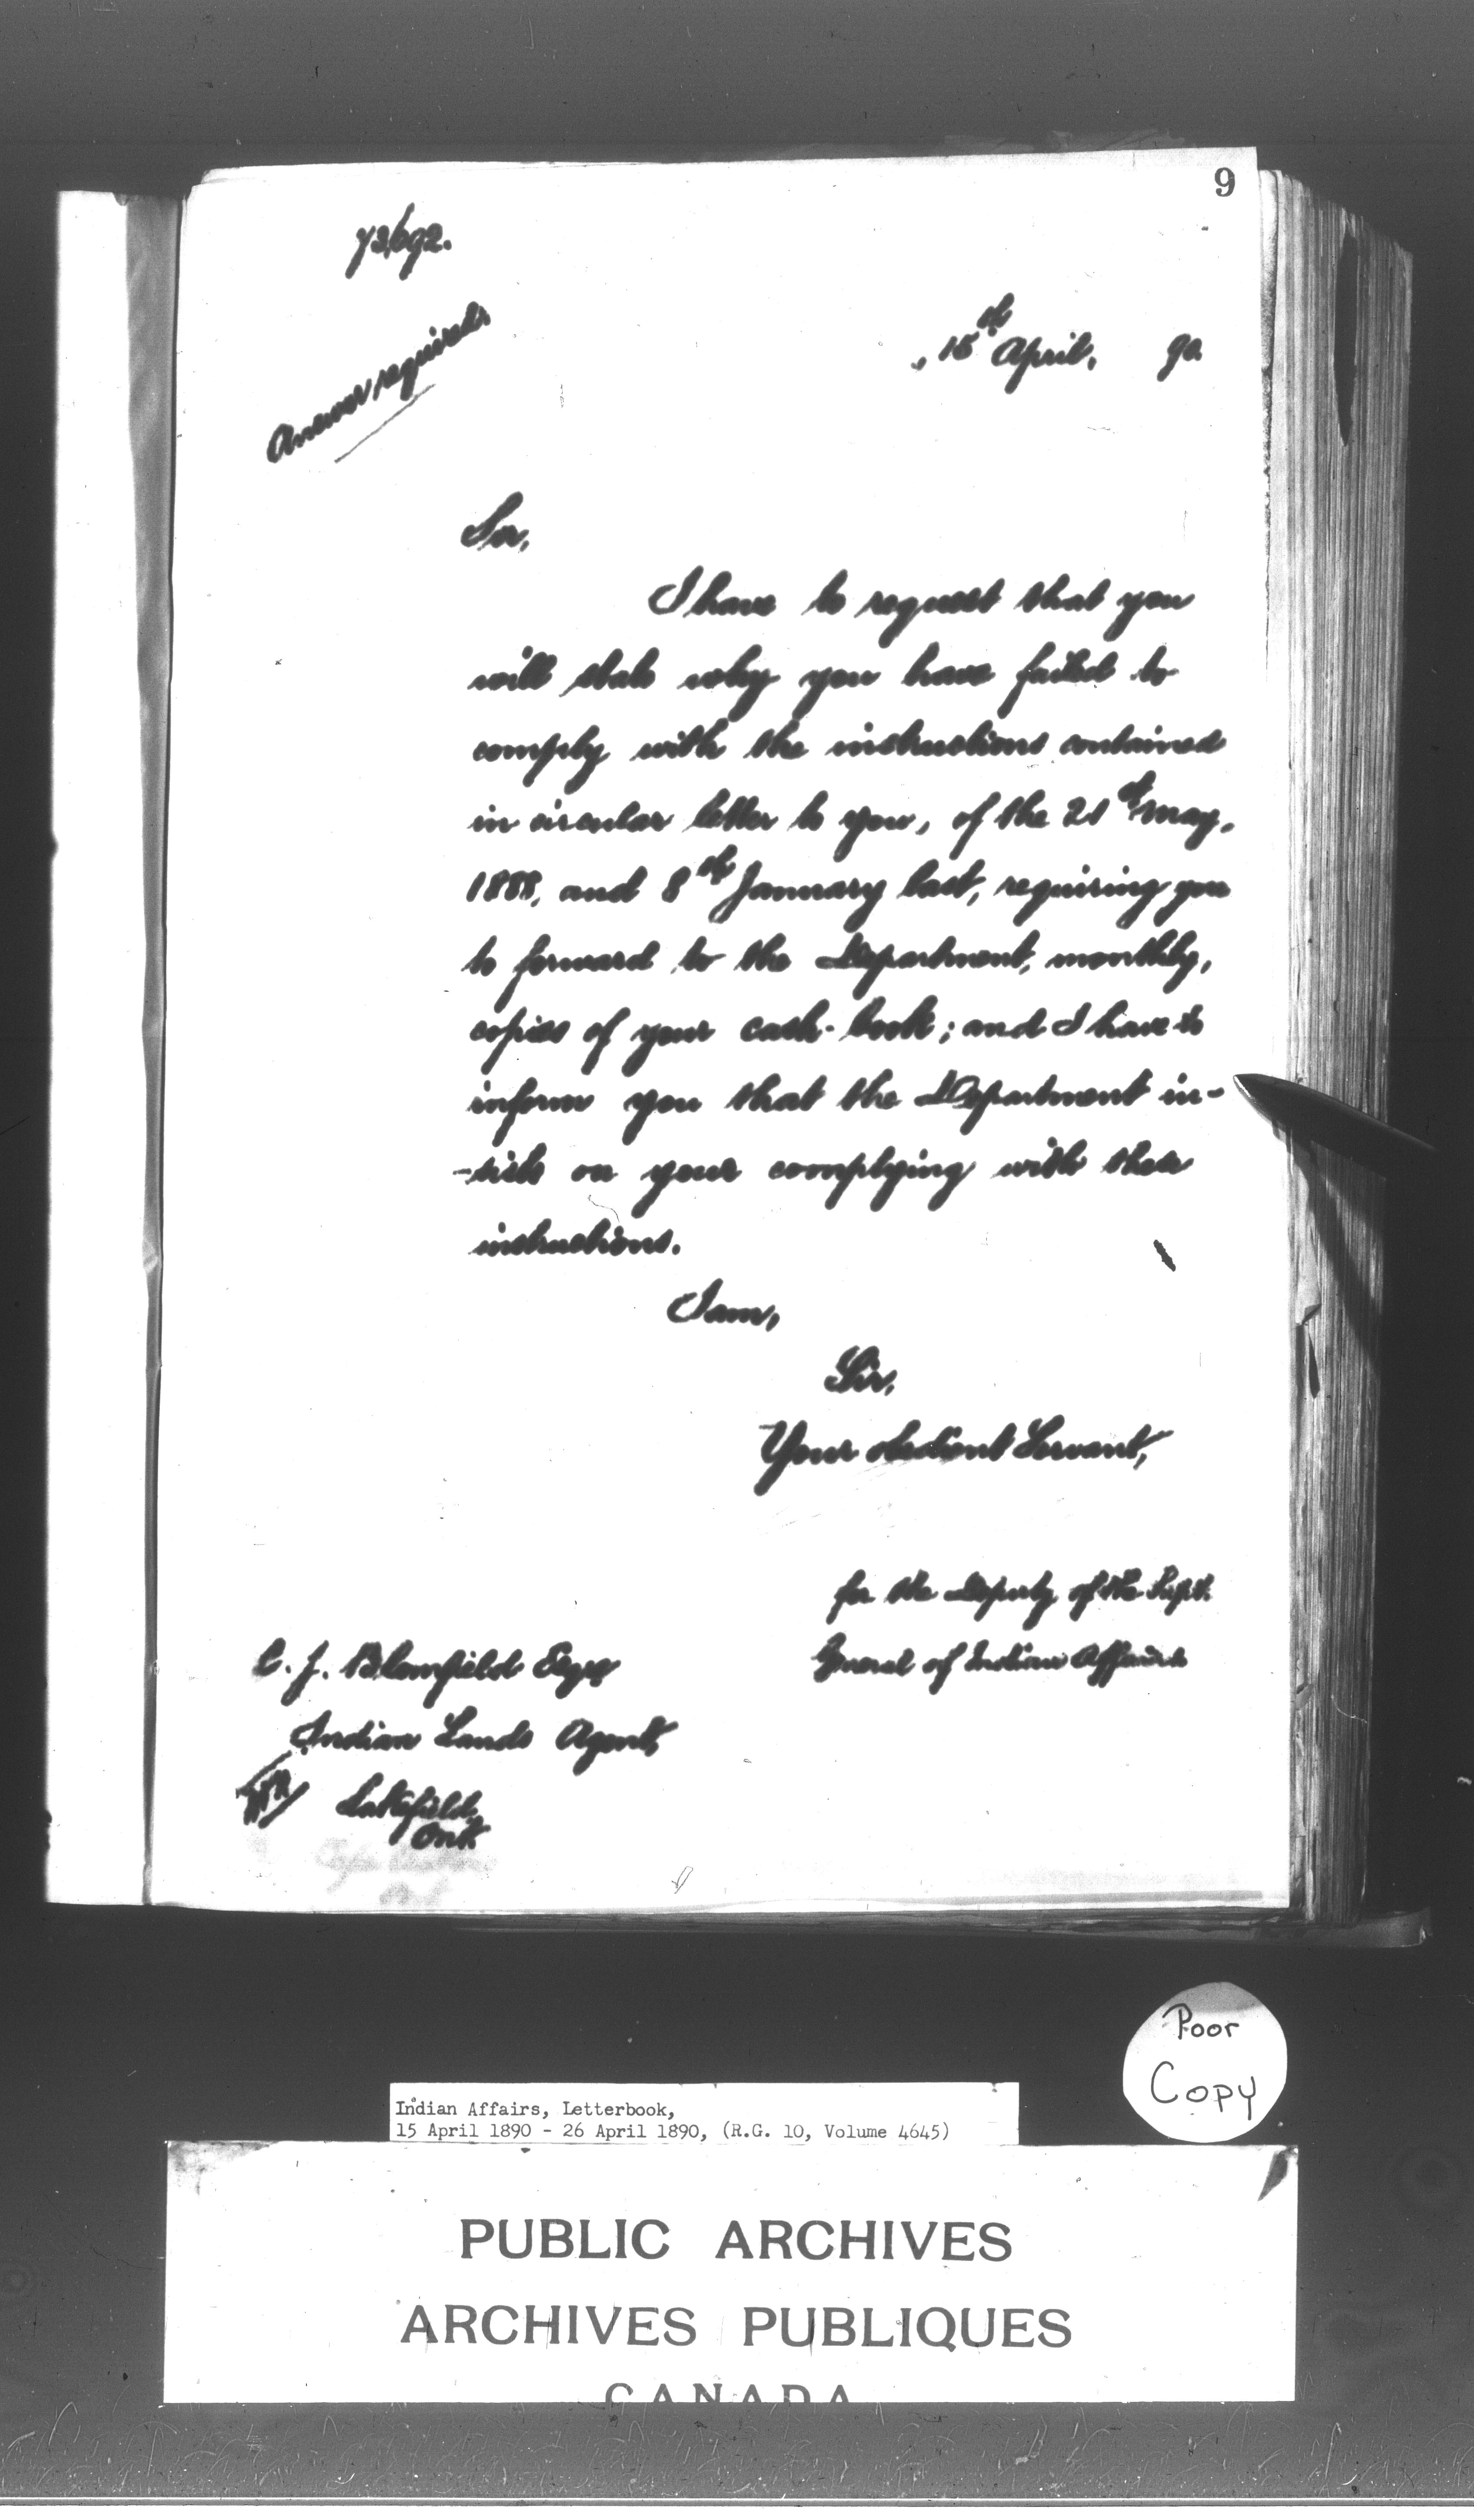 9
73,692.
Answer required.
15th April, 90
Sir,
I have to request that you
will state why you have failed to
comply with the instructions contained
in circular letter to you, of the 21st May,
1888, and 8th January last, requiring you
to forward to the Department, monthly,
copies of your cash-book; and I have to
inform you that the Department in-
-sists on your complying with these
instructions.
I am,
Sir,
Your obedient Servant,
for the Deputy of the Supt.
General of Indian Affairs
C. J. Blomfield Esqre
Indian Lands Agent,
Lakefield,
Ont.
Poor
Copy
Indian Affairs, Letterbook,
15 April 1890 - 26 April 1890, (R.G. 10, Volume 4645)
PUBLIC ARCHIVES
ARCHIVES PUBLIQUES
CANADA